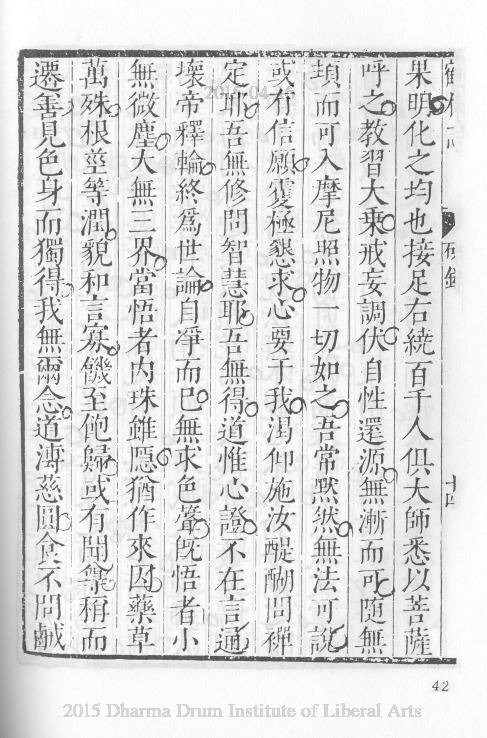 果明化之均也接足右繞百千人俱大師悉以菩薩
呼之教習大乘戒妄調伏自性還源無漸而可隨無
頊而可入摩尼照物一切如之吾常默然無法可說
或有信願叜極懇求心要于我渴仰施汝醍醐問禪
定耶吾無修問智慧耶吾無得道惟心證不在言通
壞帝釋輪終為世論自凈而已無求色聲旣悟者小
無微塵大無三界當悟者內珠雖隱猶作來因藥草
萬殊根莖等潤貌和言寡饑至飽歸或有聞尊稱而
遷善見色身而獨得我無爾念道溥慈圓食不問鹹
42
2015 Dharma Drum Institute of Liberal Arts